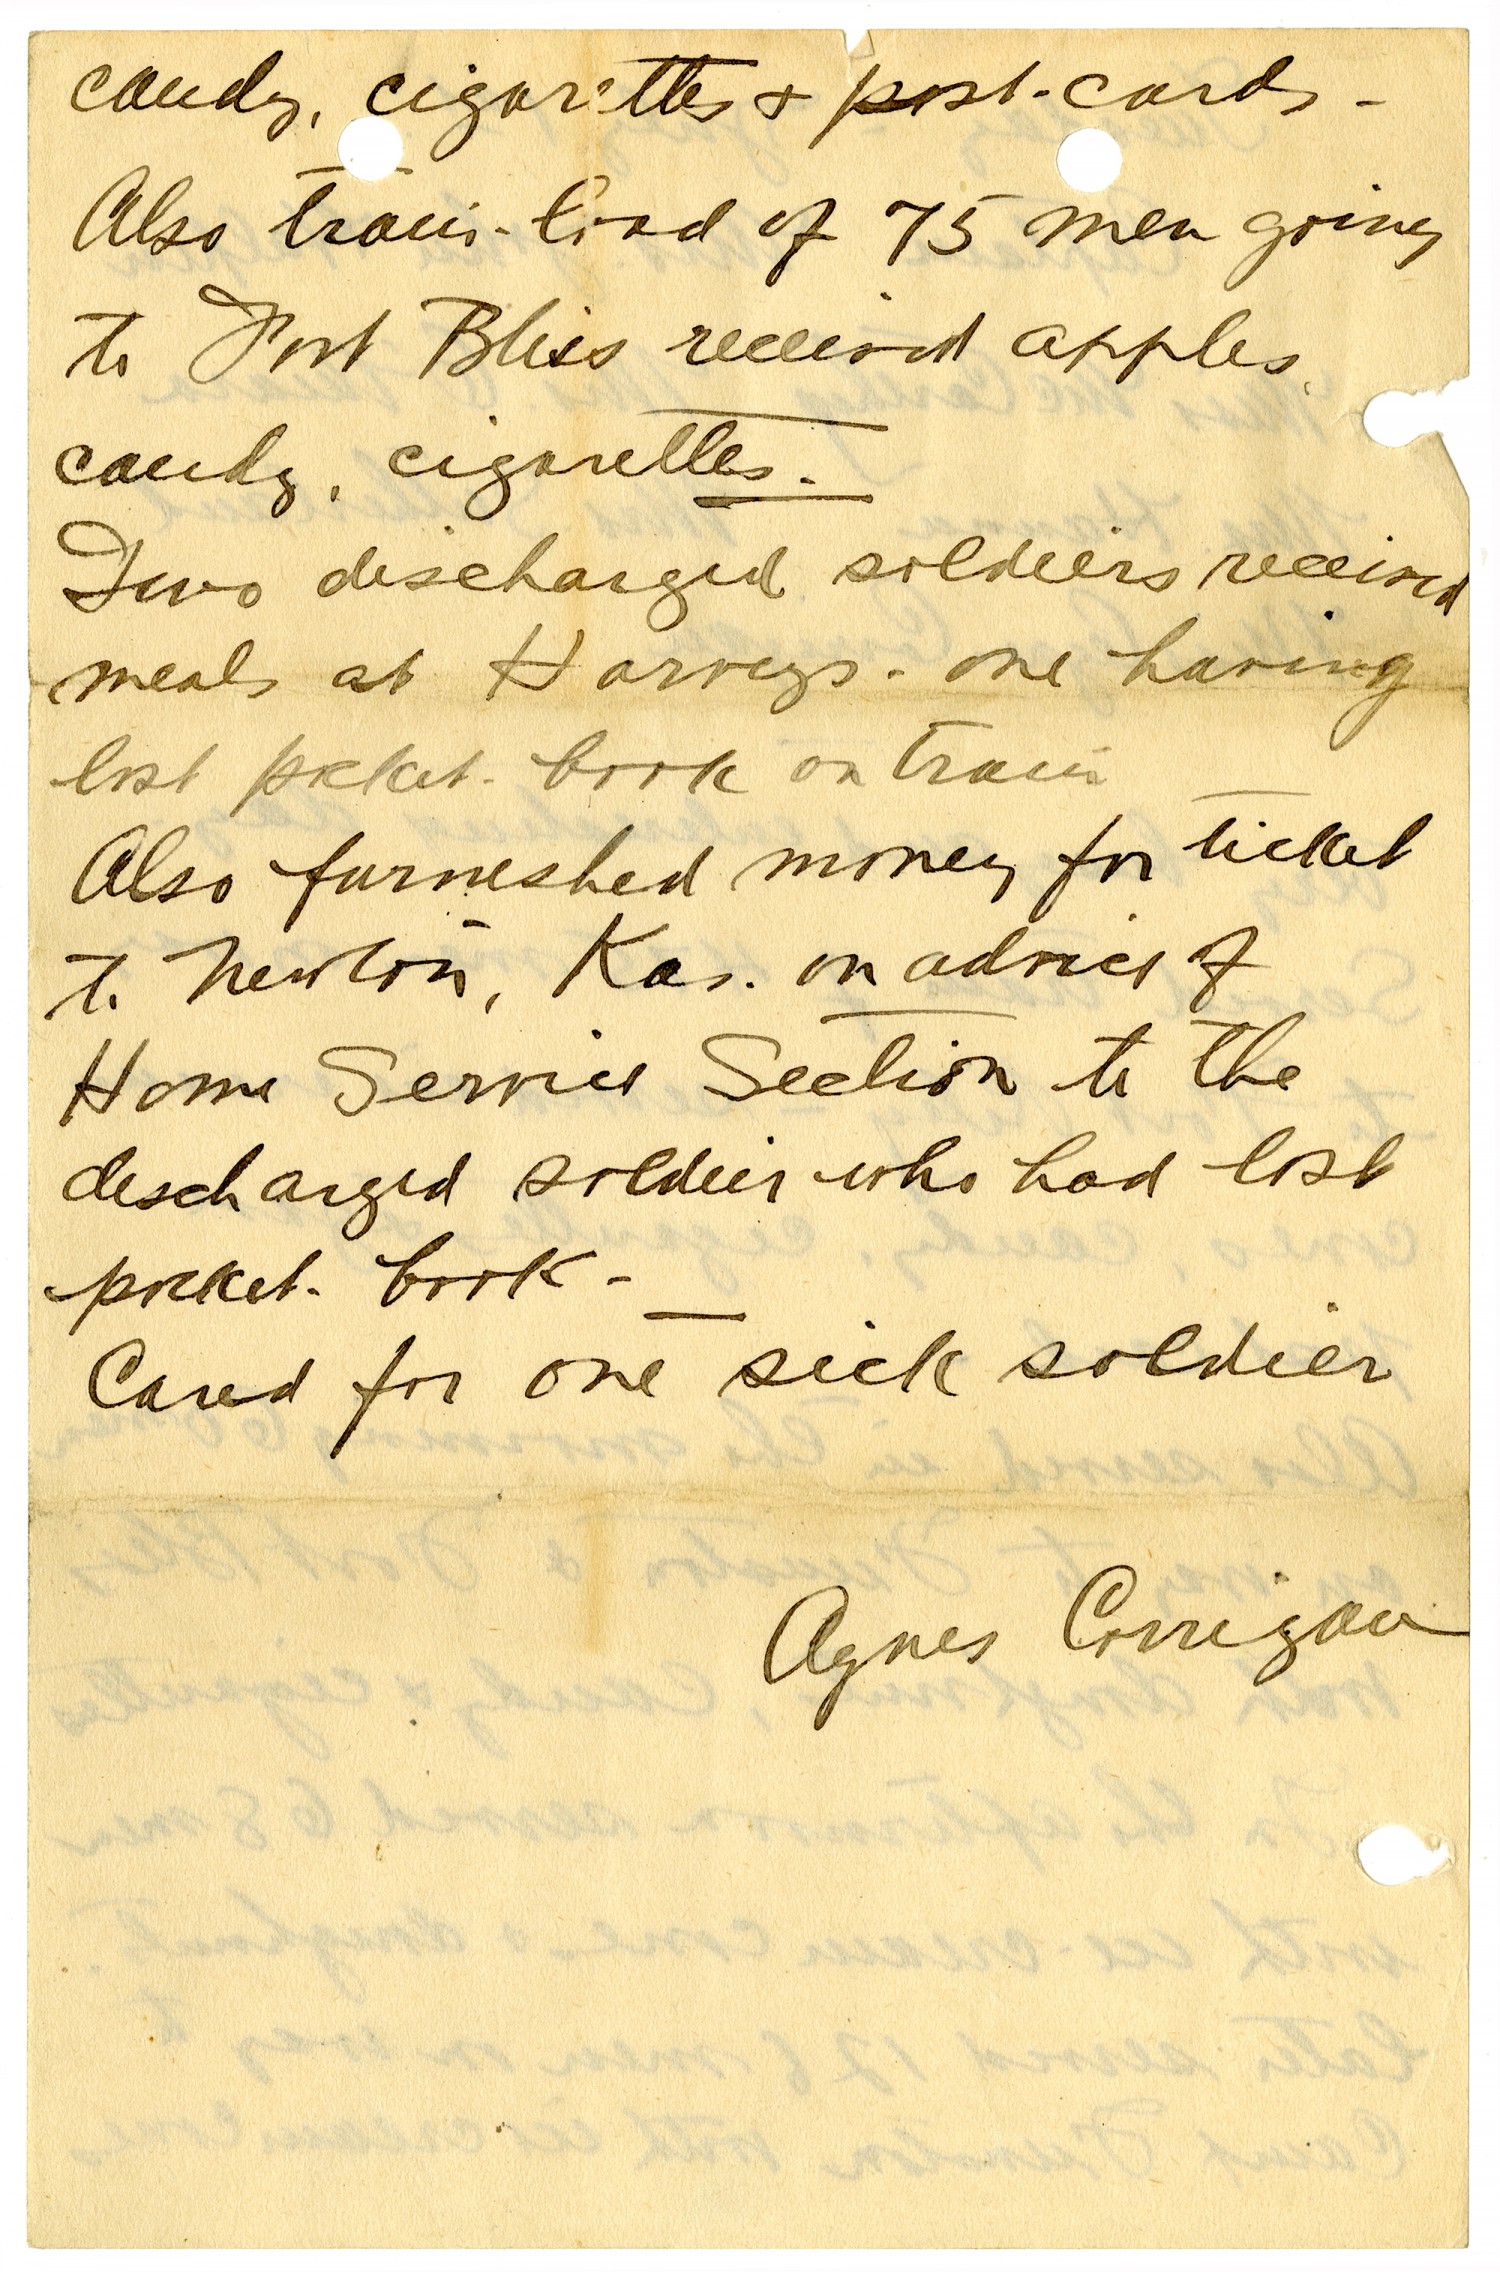 candy, cigarettes & post-cards -
Also train-load of 75 men going
to Fort Bliss received apples,
candy, cigarettes.
Two discharged soldiers received
meals at Harveys. one having
lost pocket-book on train
Also furnished money for ticket
to Newton, Kas. on advice of
Home Service Section to the
discharged soldier who had lost
pocket-book -
Cared for one sick soldier
Agnes Corrigan